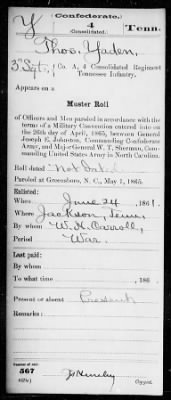 Y Confederate. Tenn.
4
Consolidated.
Thos. Yaden,
3" Sgt., Co. A, 4 Consolidated Regiment
Tennessee Infantry.
Appears on a
Muster Roll
of Officers and Men paroled in accordance with the
terms of a Military Convention entered into on
the 26th day of April, 1865, between General
Joseph E. Johnston, Commanding Confederate
Army, and Major-General W. T. Sherman, Com-
manding United States Army in North Carolina.
Roll dated Not dated
Paroled at Greensboro, N. C., May 1, 1865.
Enlisted:
When June 24, 1861.
Where Jackson, Tenn.
By whom W. H. Carroll,
Period War.
Last paid:
By whom
To what time , 186 .
Present or absent Present
Number of roll:
567
Copyist.